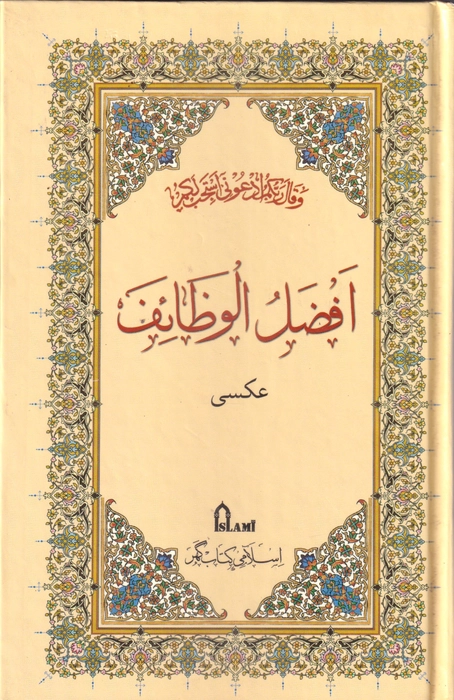 وَقَالَ رَبُّكُمُ ادْعُونِي أَسْتَجِبْ لَكُمْ
اَفضَلُ الْوظَائِفَ
عکسی
ISLAMI
اسلامی کتاب گھر